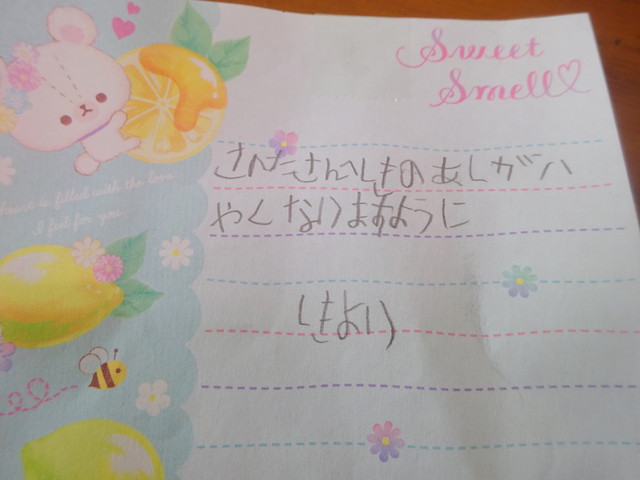 Sweet
Smell♡
heart is filled with the love
I feel for you.
さんたさんへしきのあしガハ
やくなりますように
しきより